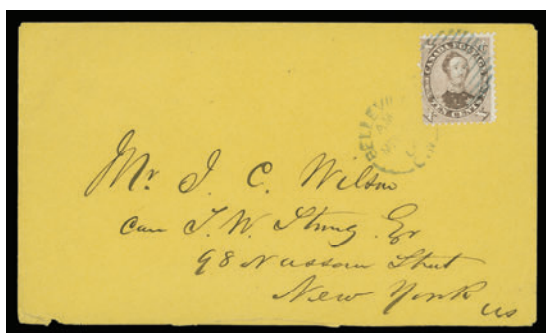 CANADA POSTAGE
TEN CENTS
BELLEVI
Mr J. C. Wilson
Care T. W. Strong Esr
98 Nassau Street
New York
US